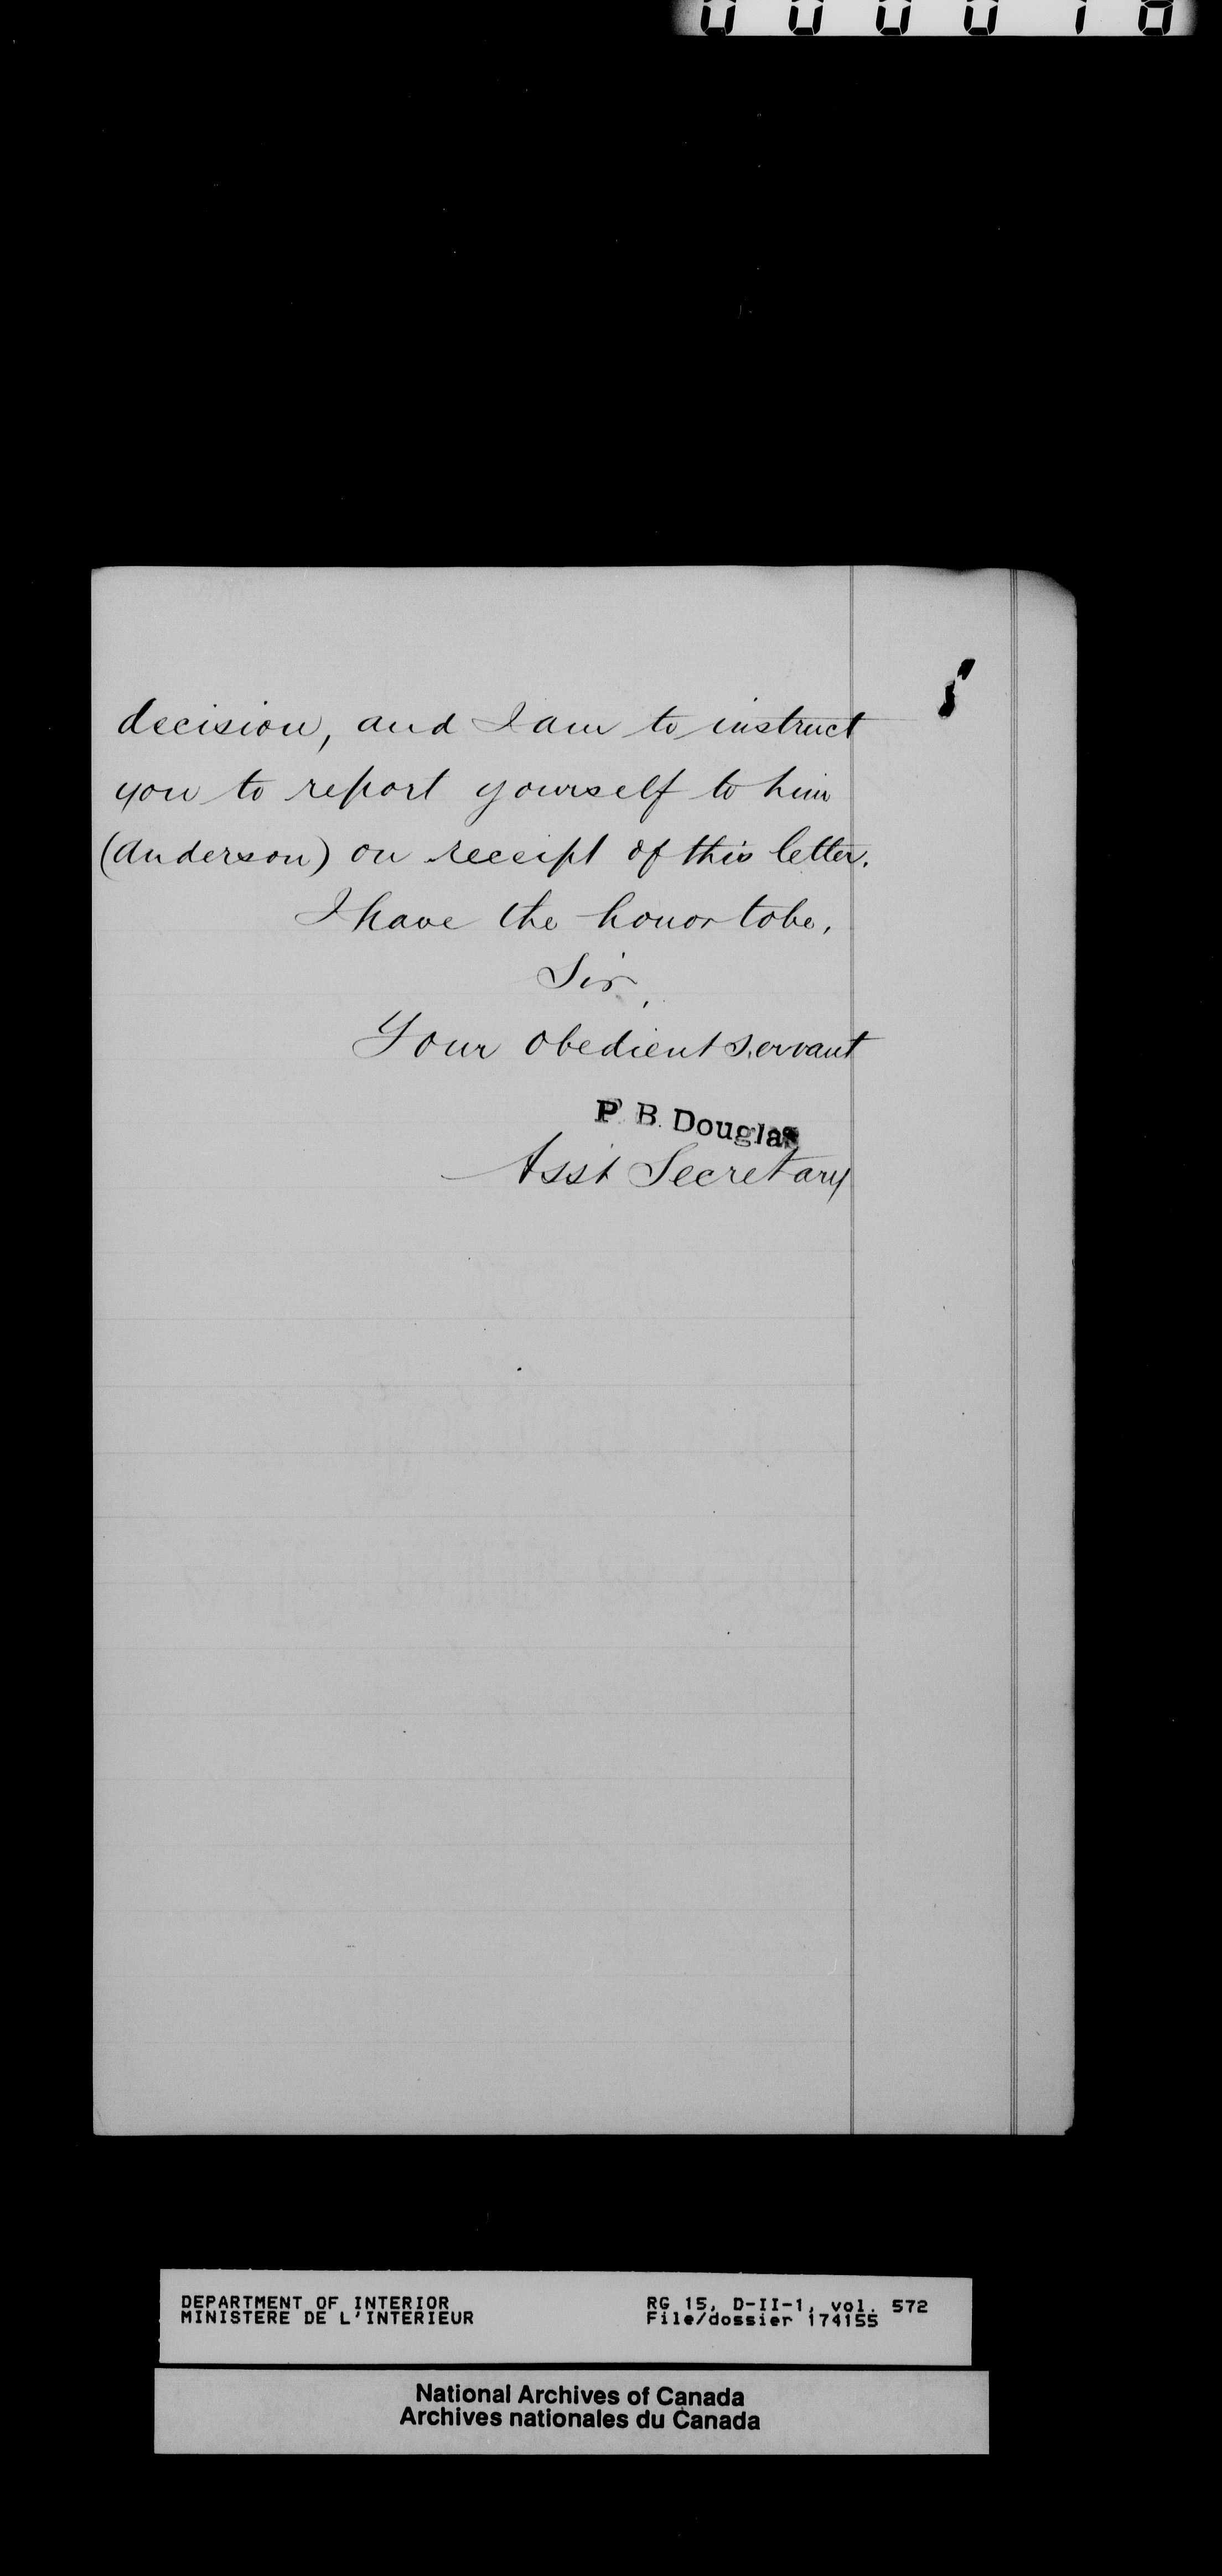 decision, and I am to instruct
you to report yourself to him
(Anderson) on receipt of this letter.
I have the honor to be,
Sir,
Your obedient servant
P. B. Douglas
Asst Secretary
DEPARTMENT OF INTERIOR
MINISTERE DE L'INTERIEUR
RG 15, D-II-1, vol. 572
File/dossier 174155
National Archives of Canada
Archives nationales du Canada